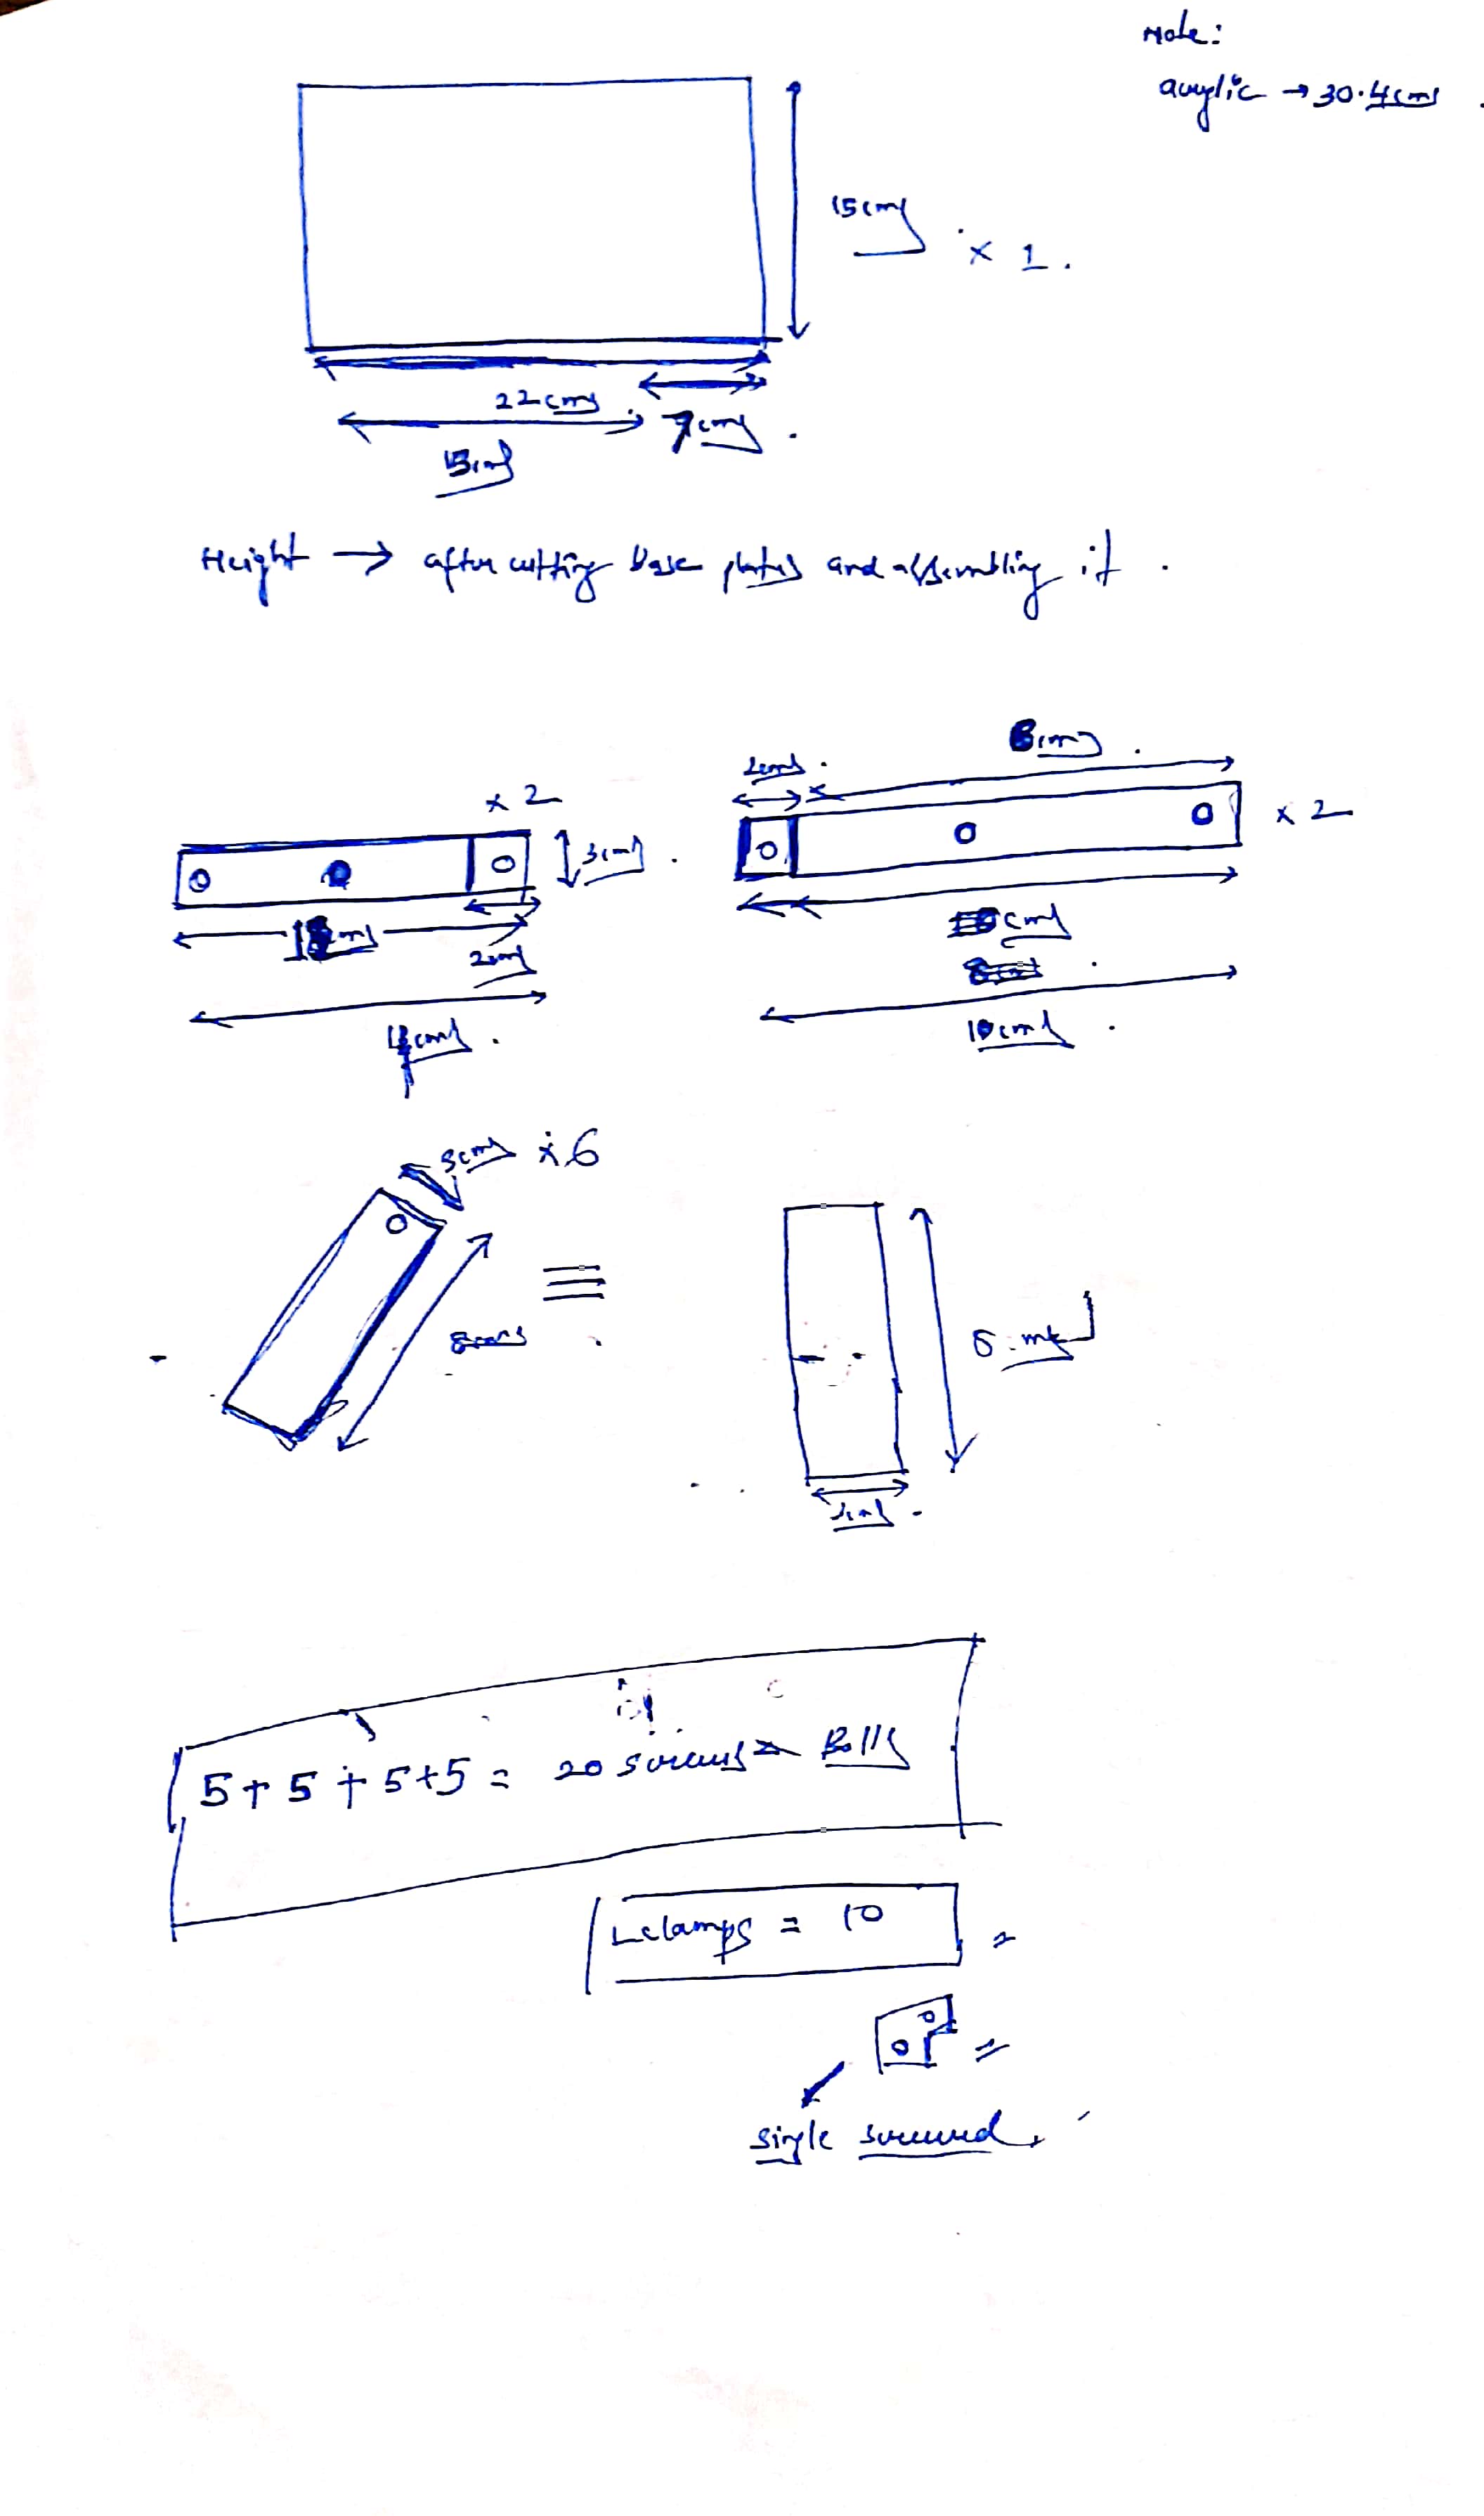 Note:
acrylic → 30.4cms
15cms
× 1.
22cms
7cms.
15cms
Height → after cutting base plates and assembling it.
8cms.
2cms.
× 2
× 2
3cms.
cms
2cms
10cms.
3cms × 6
8cms
≡
3cms.
5+5+5+5 = 20 screws Bolts
L clamps = 10
single screwed.